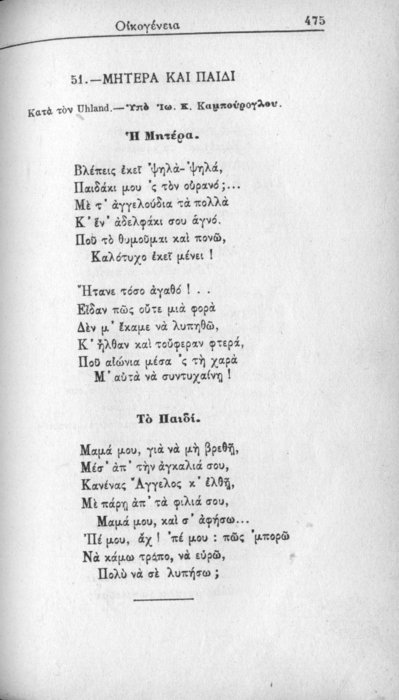 Οἰκογένεια 475
51.—ΜΗΤΕΡΑ ΚΑΙ ΠΑΙΔΙ
Κατὰ τὸν Uhland.—Ὑπὸ Ἰω. Κ. Καμπούρογλου.
Ἡ Μητέρα.
Βλέπεις ἐκεῖ ᾿ψηλὰ-᾿ψηλά,
Παιδάκι μου ᾿ς τὸν οὐρανό;...
Μὲ τ᾿ ἀγγελούδια τὰ πολλὰ
Κ᾿ ἕν᾿ ἀδελφάκι σου ἁγνό.
Ποῦ τὸ θυμοῦμαι καὶ πονῶ,
Καλότυχο ἐκεῖ μένει !
Ἤτανε τόσο ἀγαθό ! . .
Εἶδαν πῶς οὔτε μιὰ φορὰ
Δὲν μ᾿ ἔκαμε νὰ λυπηθῶ,
Κ᾿ ἦλθαν καὶ τοὔφεραν φτερά,
Ποῦ αἰώνια μέσα ᾿ς τὴ χαρὰ
Μ᾿ αὐτὰ νὰ συντυχαίνῃ !
Τὸ Παιδί.
Μαμά μου, γιὰ νὰ μὴ βρεθῇ,
Μέσ᾿ ἀπ᾿ τὴν ἀγκαλιά σου,
Κανένας Ἄγγελος κ᾿ ἐλθῇ,
Μὲ πάρῃ ἀπ᾿ τὰ φιλιά σου,
Μαμά μου, καὶ σ᾿ ἀφήσω...
Ἄπέ μου, ἄχ ! ᾿πέ μου : πῶς ᾿μπορῶ
Νὰ κάμω τρόπο, νὰ εὑρῶ,
Πολὺ νὰ σὲ λυπήσω ;